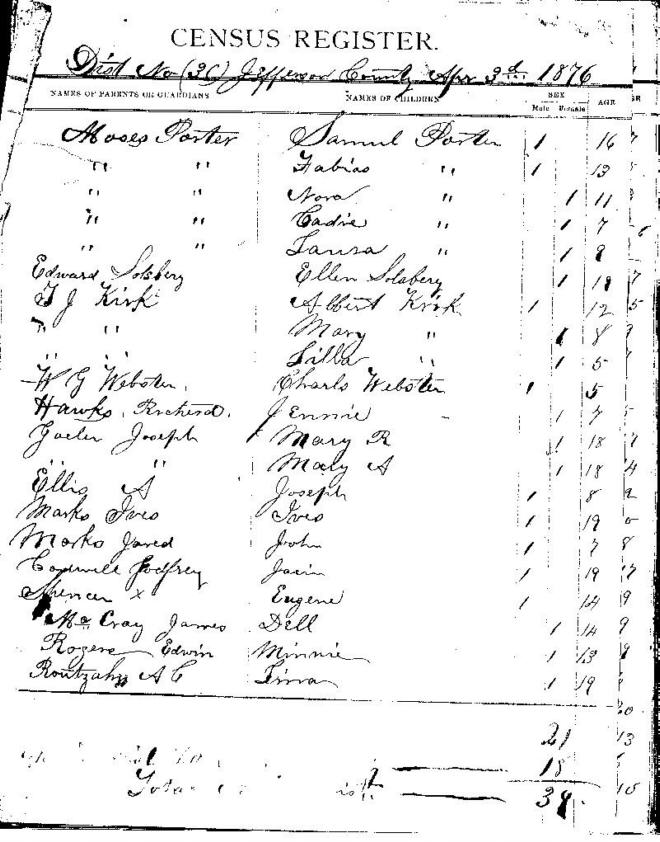 CENSUS REGISTER.
Dist No (30) Jefferson County Apr 3d 1876
NAMES OF PARENTS OR GUARDIANS NAMES OF CHILDREN SEX AGE
Male Female
Moses Porter Samuel Porter 1 16
" " Fabias " 1 13
" " Nora " 1 11
" " Cadie " 1 7
" " Laura " 1 9
Edward Solsberg Ellen Solsberg 1 18
T J Kirk Albert Kirk 1 12
" " Mary " 1 8
" " Lilla " 1 5
W G Webster Charls Webster 1 5
Hawks Richerd Jennie 1 7
Joseph Mary R 1 18
" " Mary A 1 18
Ellis A Joseph 1 8
Marks Ives Ives 1 19
Marks Jared John 1 7
Godfrey 1 19
Spencer X Eugene 1 14
Mc Cray James Dell 1 14
Rogers Edwin Minnie 1 13
Routzahn A C 1 19
21
18
39